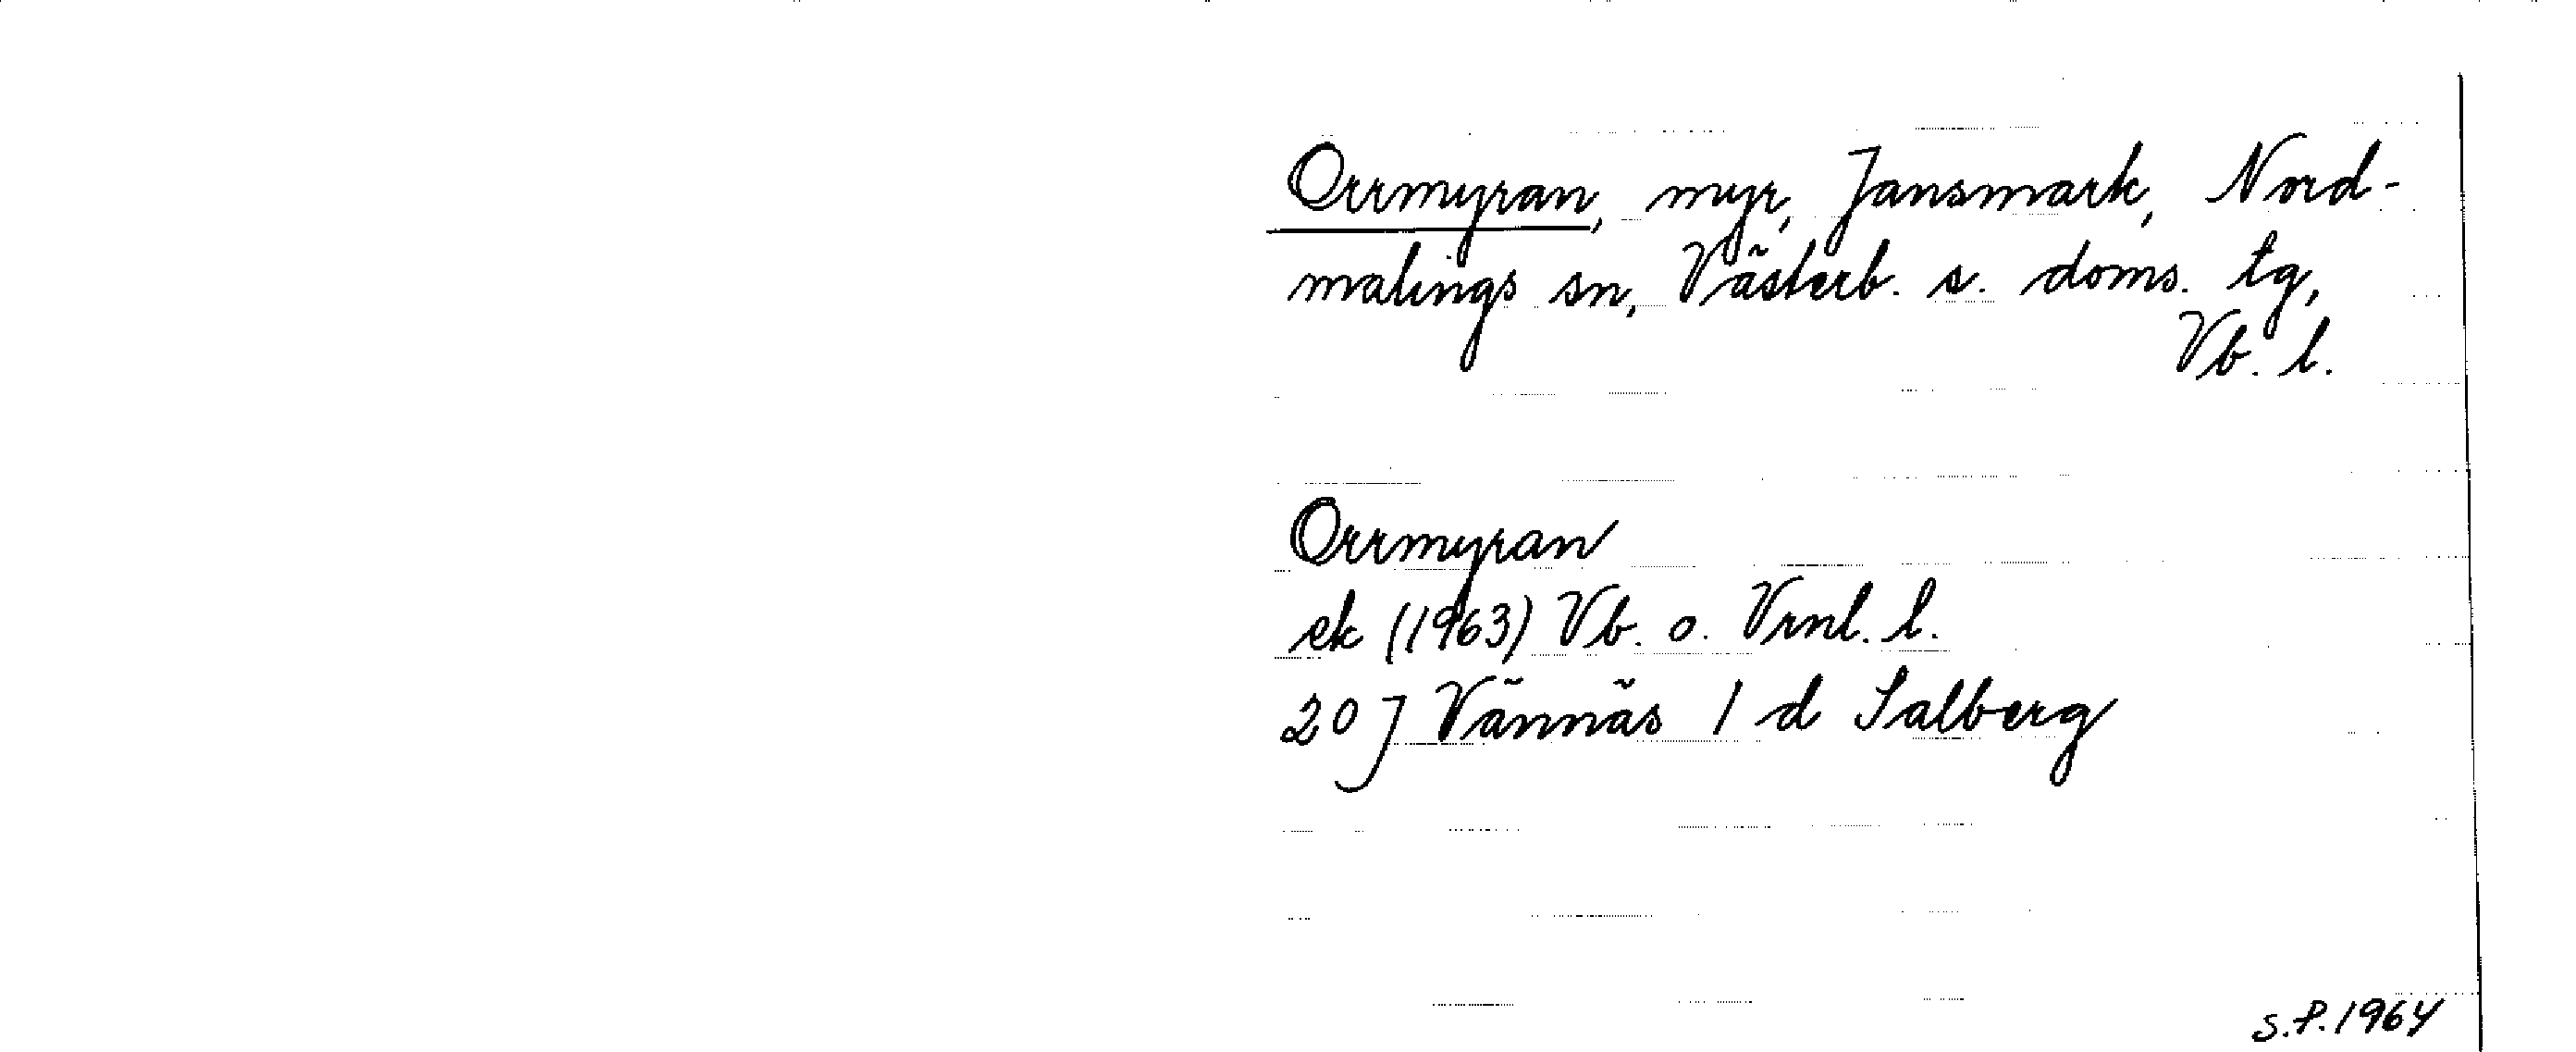 Orrmyran, myr, Jansmark, Nord-
malings sn, Västerb. s. doms. tg,
Vb. l.
Orrmyran
ek (1963) Vb. o. Vrnl. l.
20 J Vännäs 1 d Salberg
S.P. 1964